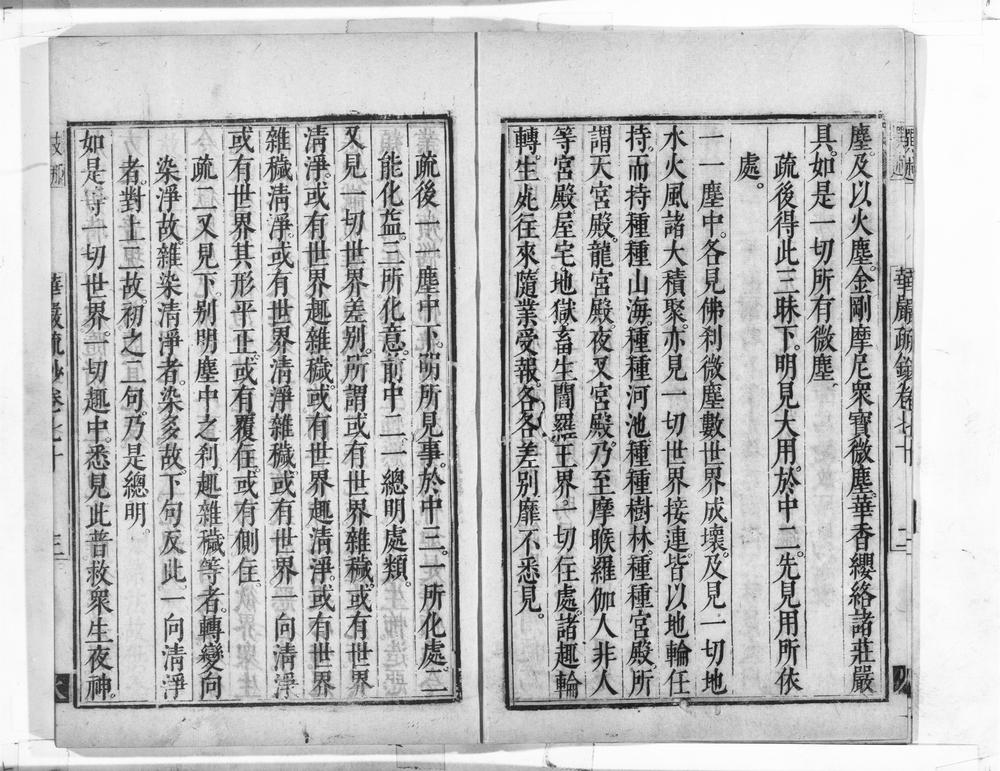 塵。及以火塵。金剛摩尼衆寶微塵。華香纓絡諸莊嚴
具。如是一切所有微塵。
疏後得此三昧下。明見大用。於中二。先見用所依
處。
一一塵中。各見佛刹微塵數世界成壞。及見一切地
水火風諸大積聚。亦見一切世界接連。皆以地輪任
持。而持種種山海。種種河池。種種樹林。種種宮殿。所
謂天宮殿。龍宮殿。夜叉宮殿。乃至摩睺羅伽人非人
等宮殿。屋宅地獄畜生閻羅王界。一切住處。諸趣輪
轉。生死往來。隨業受報。各各差別。靡不悉見。
華嚴疏鈔卷七十
二
疏後一一塵中下。明所見事。於中三。一所化處。二
能化益。三所化意。前中二。一總明處類。
又見一切世界差別。所謂或有世界雜穢。或有世界
清淨。或有世界趣雜穢。或有世界趣清淨。或有世界
雜穢清淨。或有世界清淨雜穢。或有世界一向清淨。
或有世界其形平正。或有覆住。或有側住。
疏二又見下。別明塵中之刹。趣雜穢等者。轉變向
染淨故。雜染清淨者。染多故。下句反此。一向清淨
者。對上二故。初之五句。乃是總明。
如是等一切世界。一切趣中。悉見此普救衆生夜神。
華嚴疏鈔卷七十
三